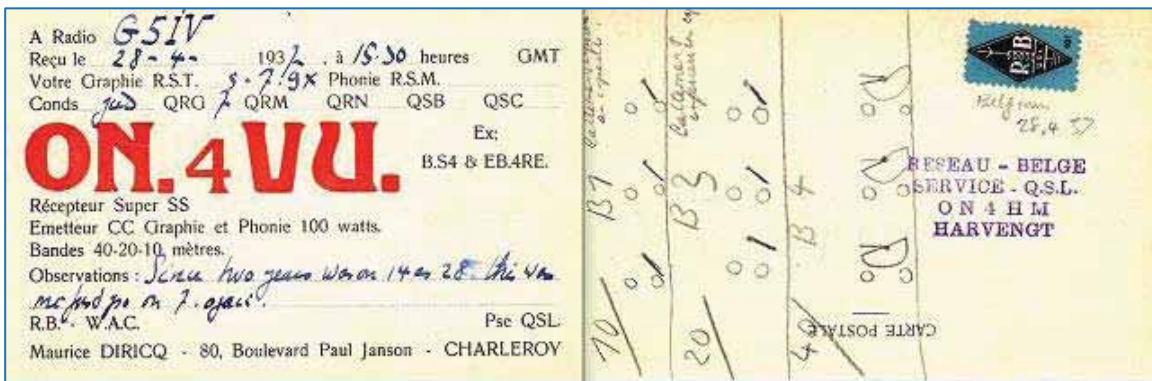 A Radio G5IV
Reçu le 28-4- 1937. à 15.30 heures GMT
Votre Graphie R.S.T. 5-7-9x Phonie R.S.M.
Conds QRG 7 QRM QRN QSB QSC
ON.4VU.
Ex:
B.S4 & EB.4RE.
Récepteur Super SS
Emetteur CC Graphie et Phonie 100 watts.
Bandes 40-20-10 mètres.
Observations : Since two years was on 14 28. this was
on 7.
R.B. - W.A.C. Pse QSL.
Maurice DIRICQ - 80, Boulevard Paul Janson - CHARLEROY
B1
10
B3
20
B4
40
CARTE POSTALE
RB
Belgium
28.4.37
RESEAU - BELGE
SERVICE - Q.S.L.
ON4HM
HARVENGT